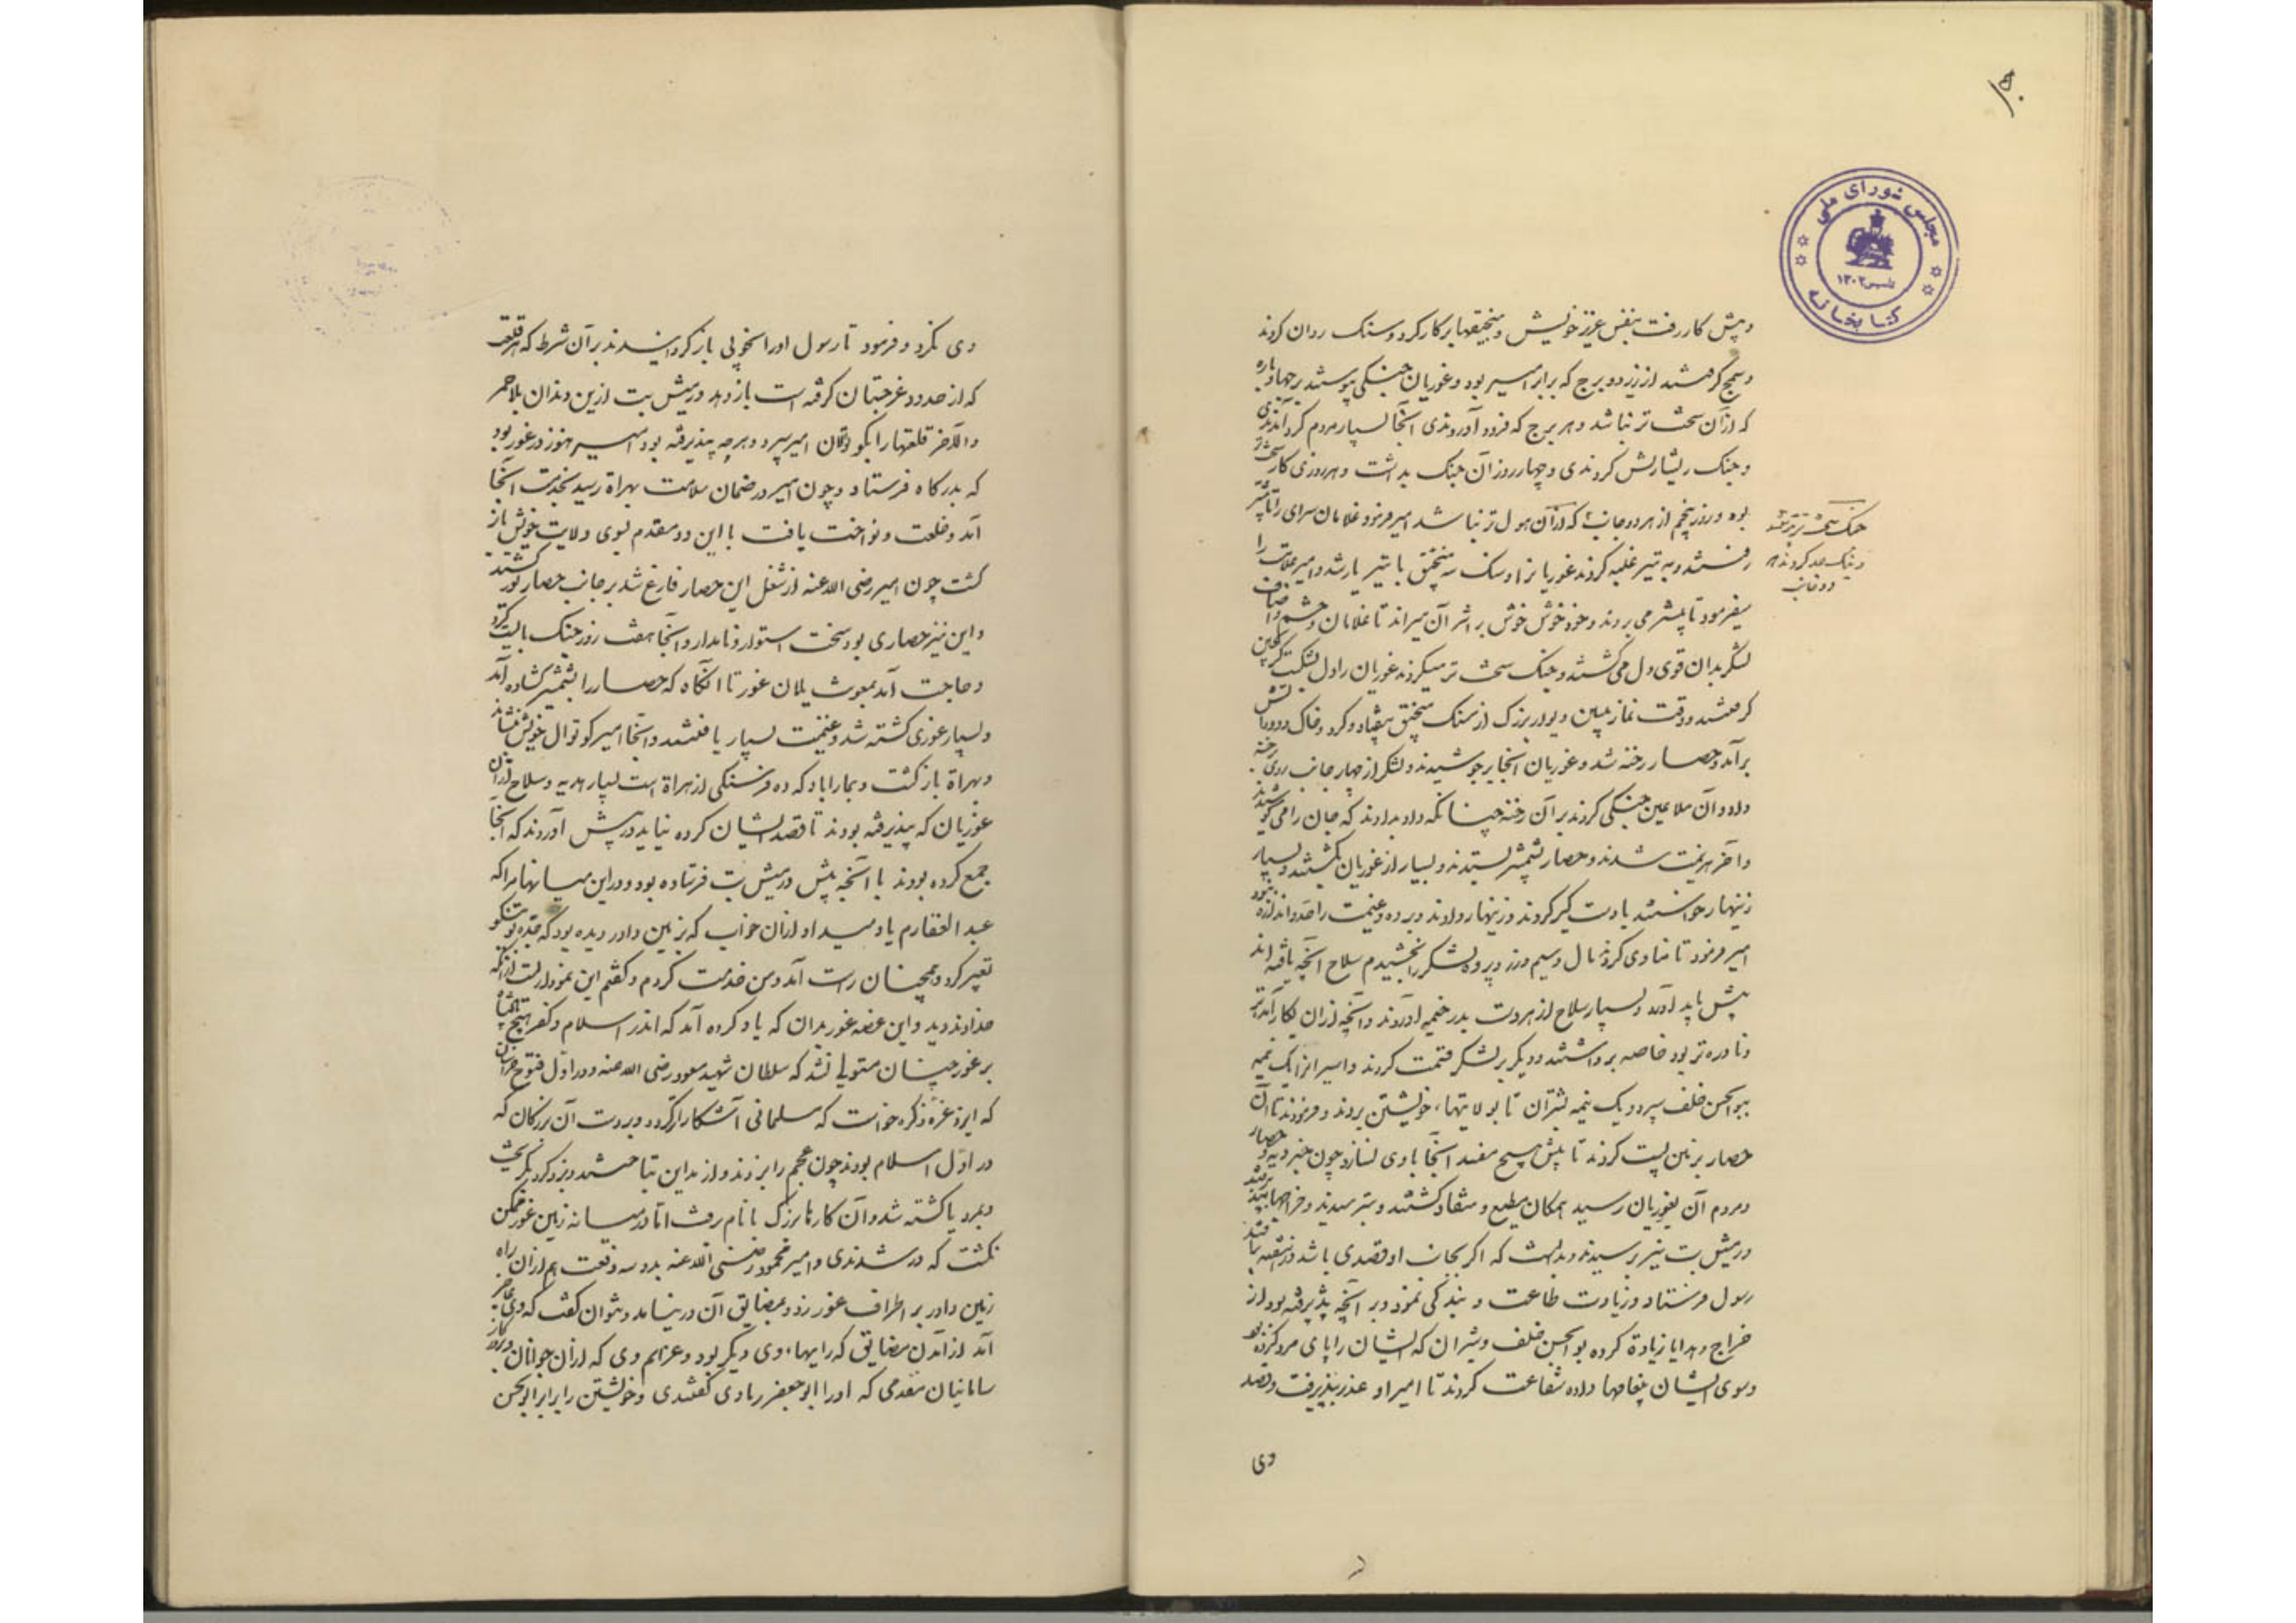 مجلس شورای ملی
تاسیس ۱۳۰۲
کتابخانه
و پیش کار رفت بنفس عزیز خویش و منجنیقها بر کار کرد و سنگ روان کردند
و سمج گرفتند از زیر دو برج که برابر امیر بود و غوریان جنگی پیوستند بر برجها و باره
که از آن سخت تر نباشد و هر برج که فرود آوردندی آنجا بسیار مردم گرد آمدندی
و جنگ ریشاریش کردندی و چهار روز آن جنگ بداشت و هر روزی کار سخت تر
بود و روز پنجم از هر دو جانب که از آن هول تر نباشد امیر فرمود غلامان سرای را تا پیشتر
جنگ سخت تر پیوستند
و نیک جد کردند هر
دو جانب
رفتند و به تیر غلبه کردند غوریانرا و سنگ سه منجنیق با تیر یار شد و امیر علامت را
میفرمود تا پیشتر می بردند و خود خوش خوش بر اثر آن میراند تا غلامان و حشم و اصناف
لشکر بدان قوی دل می گشتند و جنگ سخت تر میکردند غوریان را دل بشکست گریختن
گرفتند و وقت نماز پیشین دیوار بزرگ از سنگ منجنیق بیفتاد و گرد و خاک و دود و آتش
برآمد و حصار رخنه شد و غوریان آنجا بر جوشیدند و لشکر از چهار جانب روی برخنه
داد و آن ملاعین جنگی کردند بر آن رخنه چنانکه داد بدادند که جان را می کوشیدند
و آخر هزیمت شدند و حصار بشمشیر بستدند و بسیار از غوریان بکشتند و بسیار
زینهار خواستند تا دستگیر کردند و زینهار دادند و برده و غنیمت را حد و اندازه نبود
امیر فرمود تا منادی کردند مال و سیم و زر و برده لشکر را بخشیدم سلاح آنچه یافته اند
پیش باید آورد و بسیار سلاح از هر دست بدر خیمه آوردند و آنچه از آن بکار آمده تر
و نادره تر بود خاصه برداشتند و دیگر بر لشکر قسمت کردند و اسیرانرا یک نیمه
ببوالحسن خلف سپرد و یک نیمه بشیران تا بولایتهاء خویشتن بردند و فرمودند تا آن
حصار بزمین پست کردند تا بیش هیچ مفسد آنجا ماوی نسازد چون خبر دیه و حصار
و مردم آن بغوریان رسید همگان مطیع و منقاد گشتند و بترسیدند و خراجها بپذیرفتند
درمیش بت نیز بترسید و بدانست که اگر بجانب او قصدی باشد در هفته بر افتد
رسول فرستاد و زیادت طاعت و بندگی نمود و بر آنچه پذیرفته بود از
خراج و هدایا زیادة کرده بوالحسن خلف و شیران که ایشان را پای مرد کرده بود
و سوی ایشان پیغامها داده شفاعت کردند تا امیر او عذر بپذیرفت و قصد
وی
وی نکرد و فرمود تا رسول او را بخوبی باز گردانیدند بر آن شرط که هر قلعت
که از حدود غرجستان گرفته است باز دهد درمیش بت ازین دندان بلا حمر
والاخر قلعتها را بکوتوالان امیر سپرد و هر چه پذیرفته بود امیر هنوز در غور بود
که بدرگاه فرستاد و چون امیر در ضمان سلامت بهراة رسید بخدمت آنجا
آمد و خلعت و نواخت یافت با این دو مقدم بسوی ولایت خویش باز
گشت چون امیر رضی الله عنه از شغل این حصار فارغ شد بر جانب حصار تور کشید
و این نیز حصاری بود سخت استوار و نامدار و آنجا هفت روز جنگ بایست کرد
و حاجت آمد بمعونت یلان غور تا آنگاه که حصار را بشمشیر گشاده آمد
و بسیار غوری کشته شد و غنیمت بسیار یافتند و آنجا امیر کوتوال خویش نشاند
و بهراة باز گشت و بمارآباد که ده فرسنگی از هراة است بسیار هدیه و سلاح از آن
غوریان که پذیرفته بودند تا قصد ایشان کرده نیاید در پیش آوردند که آنجا
جمع کرده بودند با آنچه پیش درمیش بت فرستاده بود و در این میانها مرا که
عبد الغفارم یاد میداد از آن خواب که بزمین داور دیده بود که جده تو نیکو
تعبیر کرد و همچنان راست آمد و من خدمت کردم و گفتم این نموداریست از آنکه
خداوند دید و این قصه غور بدان که یاد کرده آمد که اندر اسلام و کفر هیچ پادشاه
بر غور چنان مستولی نشد که سلطان شهید مسعود رضی الله عنه و در اول فتوح خراسان
که ایزد عز ذکره خواست که مسلمانی آشکاراتر گردد و بردست آن بزرگان که
در اول اسلام بودند چون عجم را بزدند و از مداین بتاختند و یزدگرد بگریخت
و بمرد یا کشته شد و آن کارها بزرگ با نام رفت اما در میانه زمین غور ممکن
نگشت که در شدندی و امیر محمود رضی الله عنه بدو سه دفعت هم از آن راه
زمین داور بر اطراف غور زد و بمضایق آن درنیامد و نتوان گفت که وی عاجز
آمد از آمدن مضایق که رایهاء وی دیگر بود و عزایم وی که از آن جوانان و بروزگار
سامانیان مقدمی که او را ابو جعفر زیادی گفتندی و خویشتن را برابر ابوالحسن